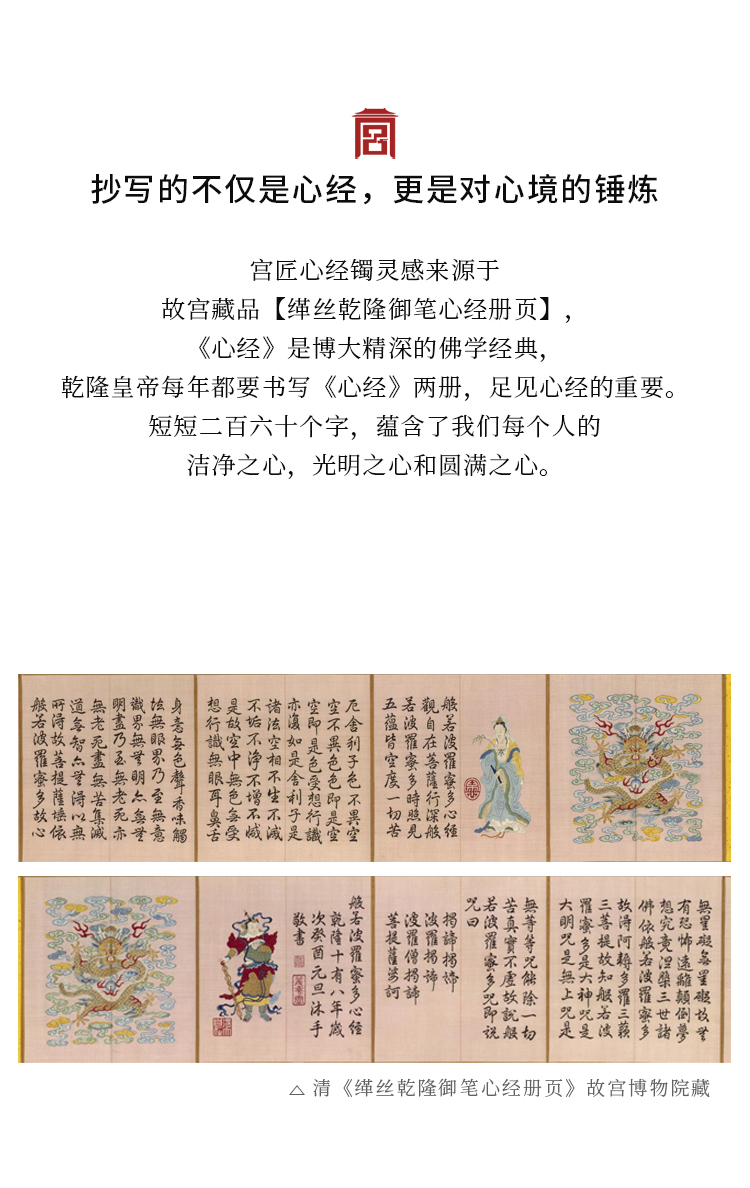 抄写的不仅是心经，更是对心境的锤炼
宫匠心经镯灵感来源于
故宫藏品【缂丝乾隆御笔心经册页】，
《心经》是博大精深的佛学经典，
乾隆皇帝每年都要书写《心经》两册，足见心经的重要。
短短二百六十个字，蕴含了我们每个人的
洁净之心，光明之心和圆满之心。
般若波羅蜜多心經
觀自在菩薩行深般
若波羅蜜多時照見
五蘊皆空度一切苦
厄舍利子色不異空
空不異色色即是空
空即是色受想行識
亦復如是舍利子是
諸法空相不生不滅
不垢不淨不增不減
是故空中無色無受
想行識無眼耳鼻舌
身意無色聲香味觸
法無眼界乃至無意
識界無無明亦無無
明盡乃至無老死亦
無老死盡無苦集滅
道無智亦無得以無
所得故菩提薩埵依
般若波羅蜜多故心
無罣礙無罣礙故無
有恐怖遠離顛倒夢
想究竟涅槃三世諸
佛依般若波羅蜜多
故得阿耨多羅三藐
三菩提故知般若波
羅蜜多是大神咒是
大明咒是無上咒是
無等等咒能除一切
苦真實不虛故說般
若波羅蜜多咒即說
咒曰
揭諦揭諦
波羅揭諦
波羅僧揭諦
菩提薩婆訶
般若波羅蜜多心經
乾隆十有八年歲
次癸酉元旦沐手
敬書
△ 清《缂丝乾隆御笔心经册页》故宫博物院藏